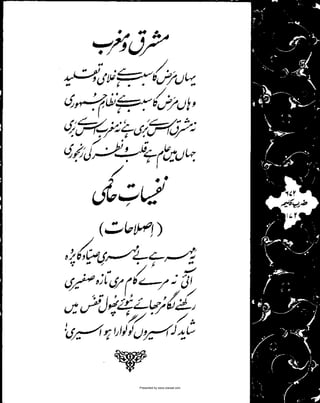 مشرق و مغرب
یہاں مرض کا سبب ہے غلامی و تقلید
وہاں مرض کا سبب ہے نظامِ جمہوری
نہ مشرق اس سے بری ہے نہ مغرب اس سے بری
جہاں میں عام ہے قلب و نظر کی رنجوری
نفسیاتِ حاکمی
(اصلاحات)
یہ مہر ہے بے مہریِ صیّاد کا پردہ
آئی نہ مرے کام مری تازہ صفیری
رکھنے لگا مرجھائے ہوئے پھول قفس میں
شاید کہ اسیروں کو گوارا ہو اسیری!
ضربِ کلیم